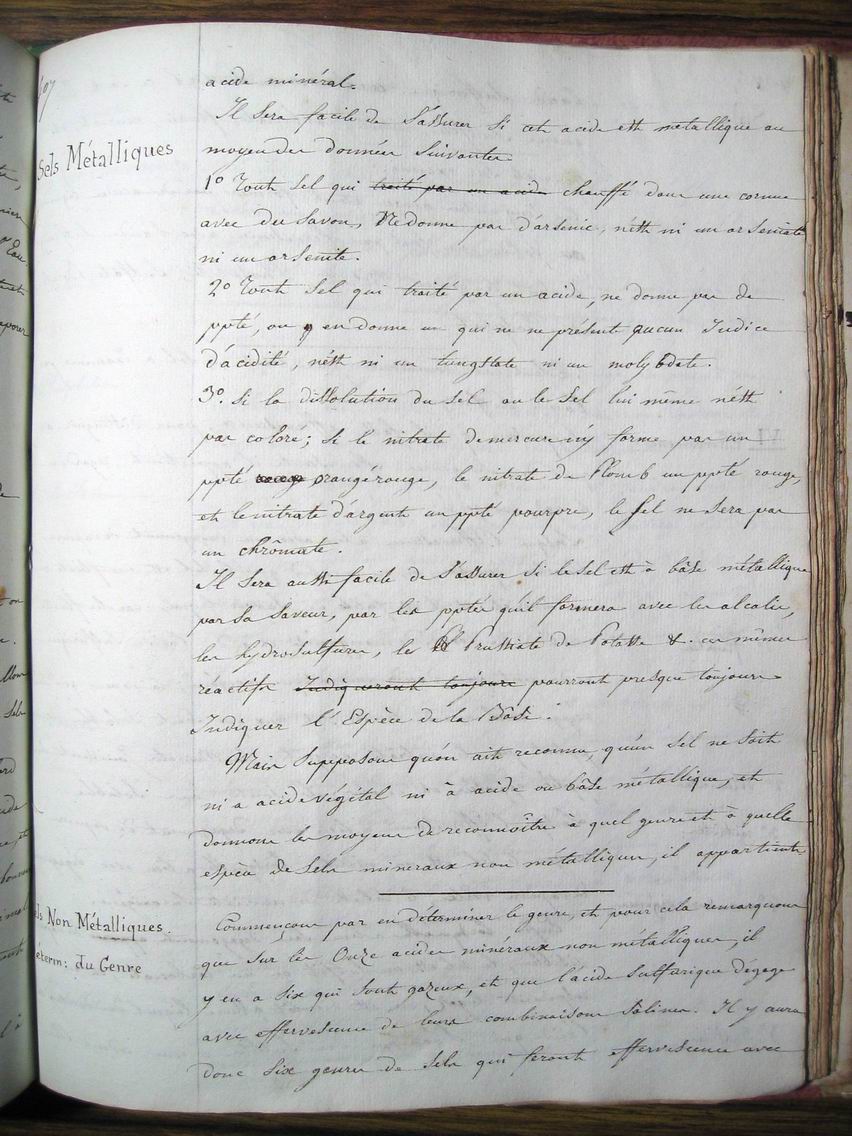 acide minéral.
Sels Métalliques
Il sera facile de s'assurer si cet acide est métallique au
moyen des données suivantes.
1º Tout sel qui traité par un acide chauffé dans une cornue
avec du savon, ne donne pas d'arsenic, n'est ni un arseniate
ni un arsenite.
2º Tout sel qui traité par un acide, ne donne pas de
ppté, ou en donne un qui ne ne présente aucun Indice
d'acidité, n'est ni un tungstate ni un molybdate.
3º. Si la dissolution du sel ou le sel lui même n'est
pas coloré; si le nitrate de mercure n'y forme pas un
ppté rouge orangé rouge, le nitrate de Plomb un ppté rouge,
et le nitrate d'argent un ppté pourpre, le sel ne sera pas
un chrômate.
Il sera aussi facile de s'assurer si le sel est à bâse métallique
par sa saveur, par les pptés qu'il formera avec les alcalis,
les hydrosulfures, les Prussiate de Potasse &. ces mêmes
réactifs Indiqueront toujours pourront presque toujours
Indiquer l'Espèce de la Bâse.
Mais supposons qu'on ait reconnu, qu'un sel ne soit
ni a acide végétal ni à acide ou bâse métallique, et
donnons les moyens de reconnoître à quel genre et à quelle
espèce de sels minéraux non métalliques, il appartient.
Sels Non Métalliques.
Commençons par en déterminer le genre, et pour cela remarquons
que sur les Onze acides minéraux non métalliques, il
déterm: du Genre
y en a six qui sont gazeux, et que l'acide sulfurique dégage
avec effervescence de leurs combinaisons salines. Il y aura
donc six genres de sels qui feront effervescence avec